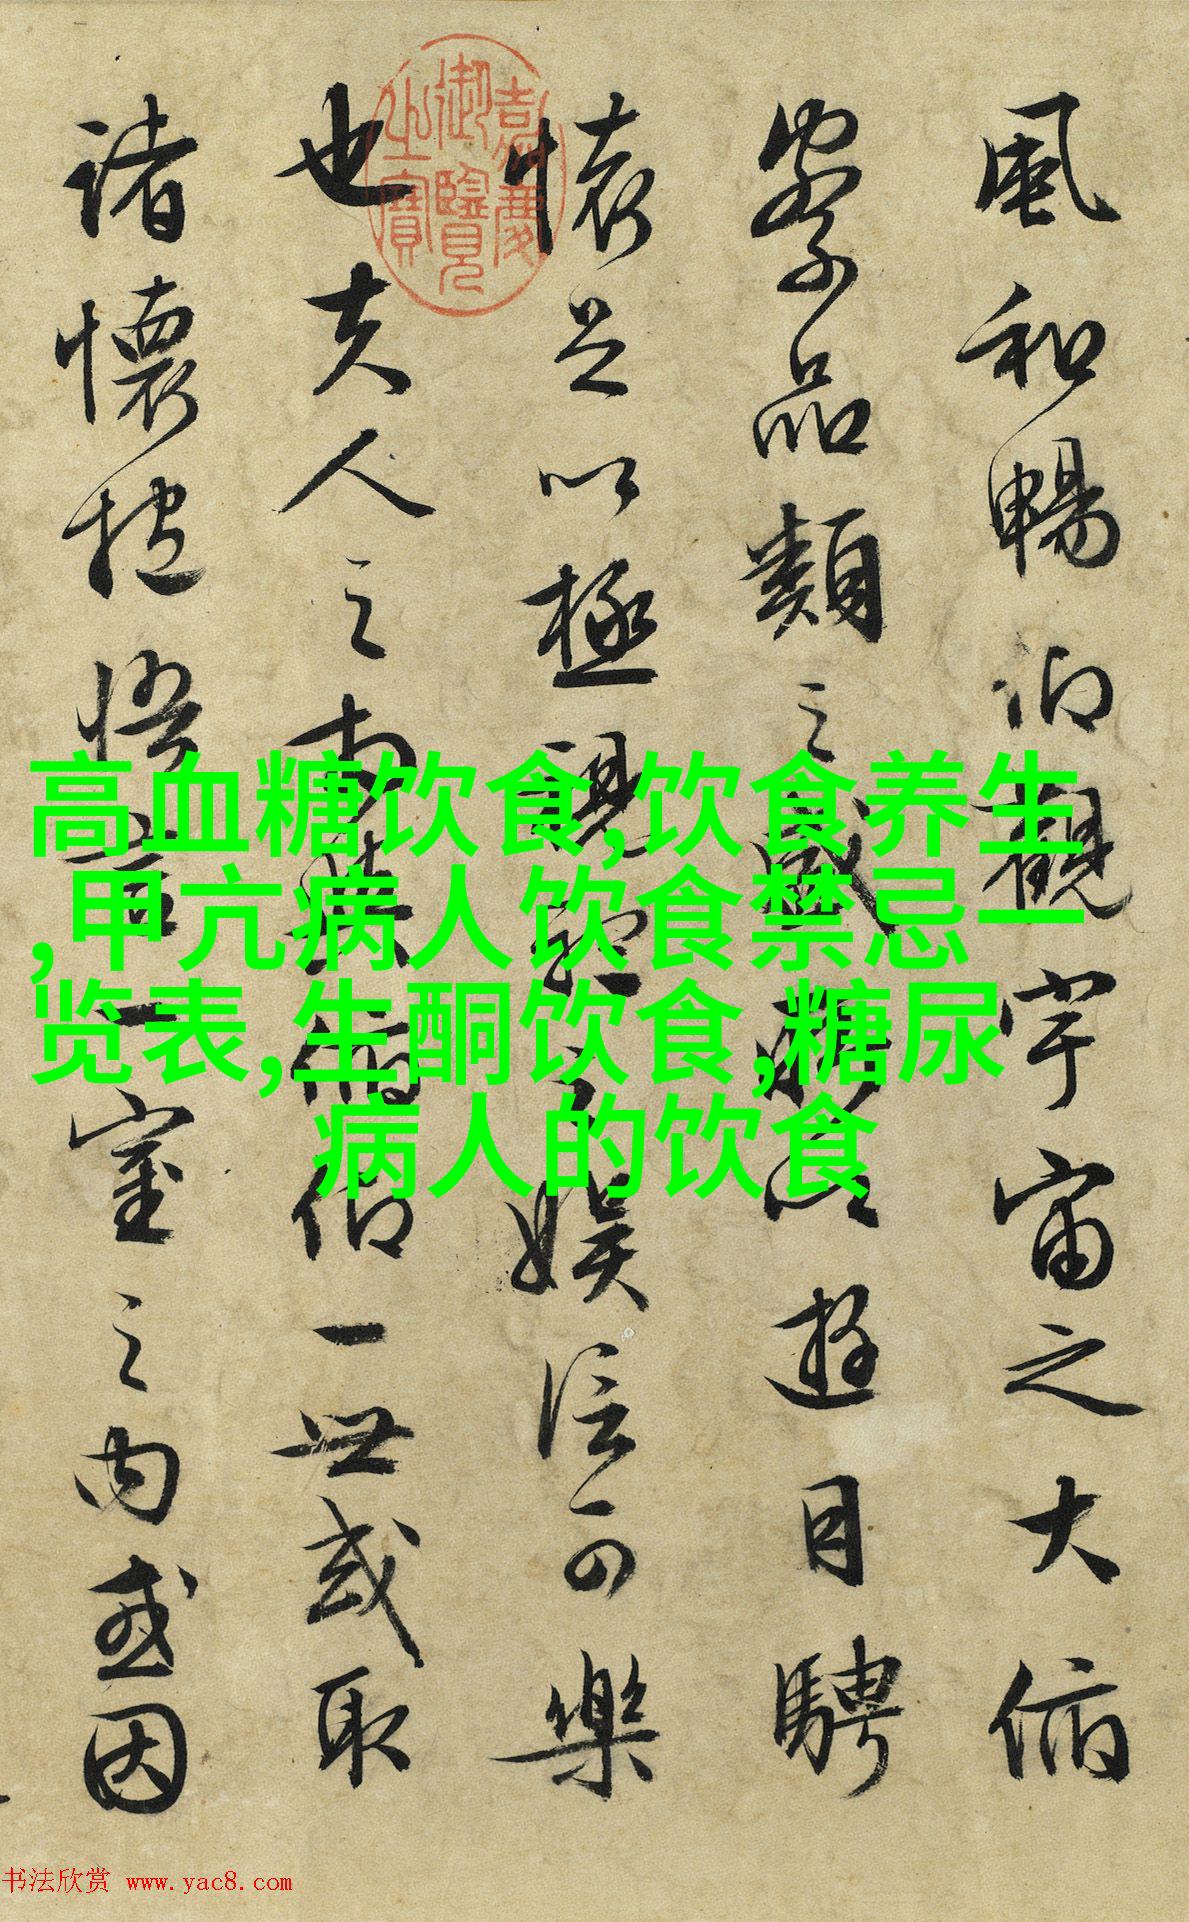 風和暢仰觀宇宙之大俯
察品類之盛所以遊目騁
懷足以極視聽之娛信可樂
也夫人之相與俯仰一世或取
諸懷抱悟言一室之內或因
嘉慶御覽之寶
高血糖饮食,饮食养生
,甲亢病人饮食禁忌一
览表,生酮饮食,糖尿
病人的饮食
书法欣赏 www.yac8.com